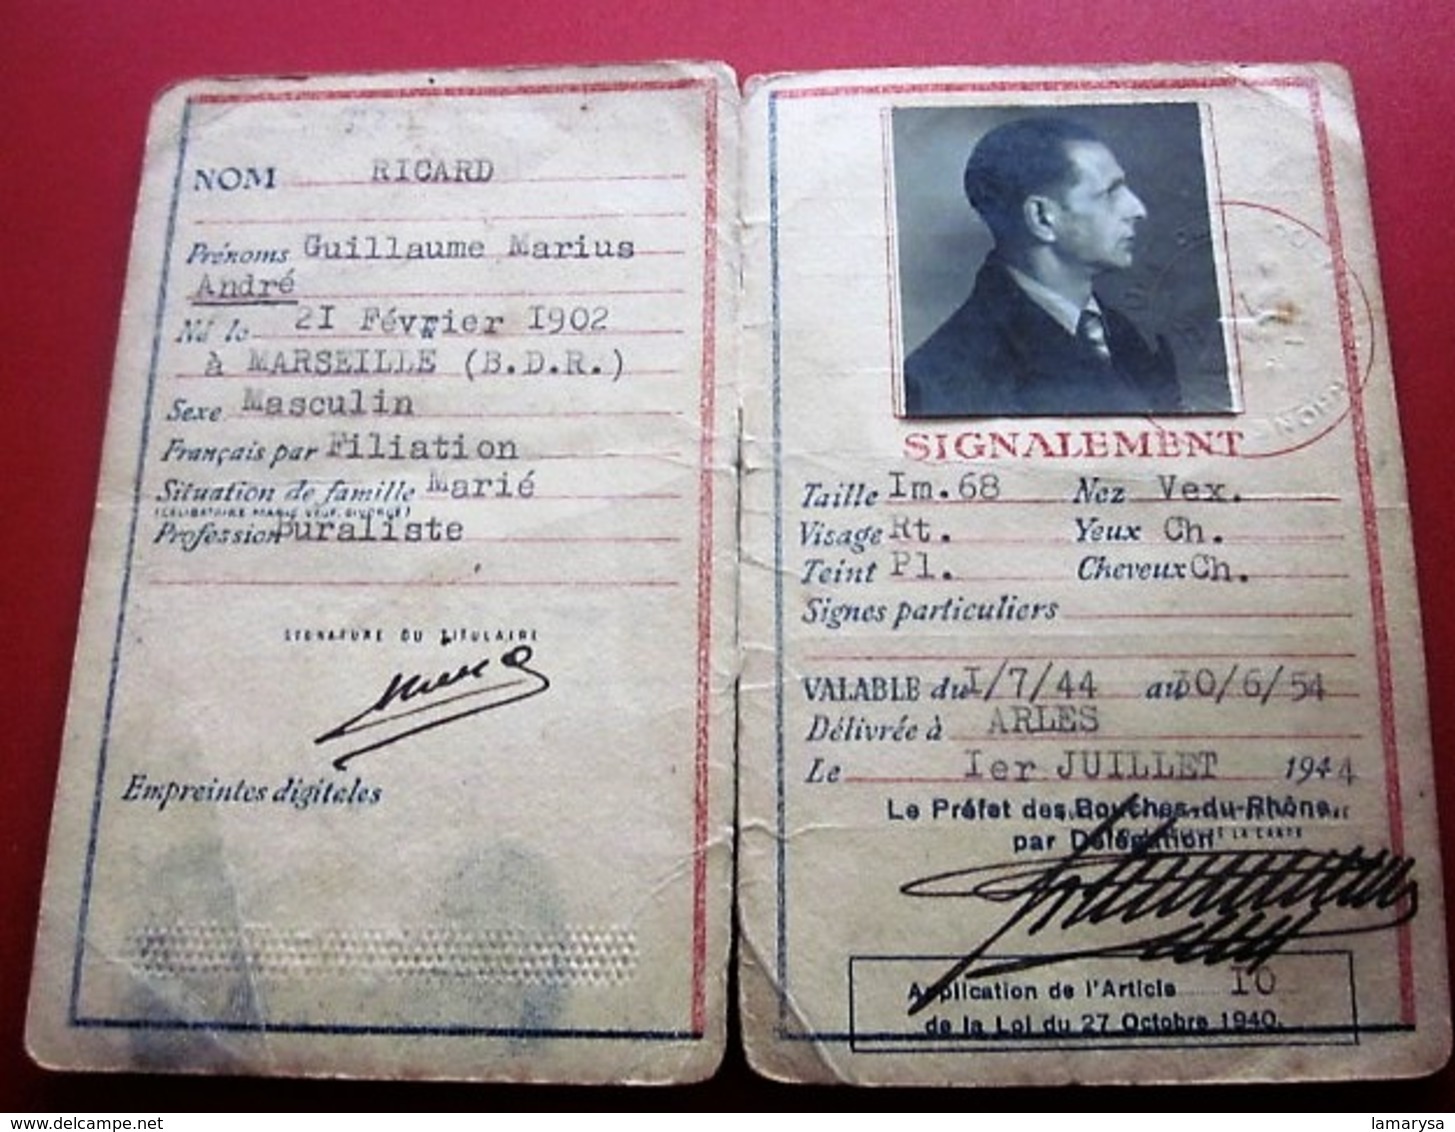 NOM RICARD
Prénoms Guillaume Marius
André
Né le 21 Février 1902
à MARSEILLE (B.D.R.)
Sexe Masculin
Français par Filiation
Situation de famille Marié
(CÉLIBATAIRE MARIÉ VEUF DIVORCÉ)
Profession buraliste
SIGNATURE DU TITULAIRE
Empreintes digitales
SIGNALEMENT
Taille Im.68 Nez Vex.
Visage Rt. Yeux Ch.
Teint Pl. Cheveux Ch.
Signes particuliers
VALABLE du I/7/44 au 30/6/54
Délivrée à ARLES
Le Ier JUILLET 1944
Le Préfet des Bouches-du-Rhône
par Délégation LA CARTE
Application de l'Article IO
de la Loi du 27 Octobre 1940.
© delcampe.net
lamarysa